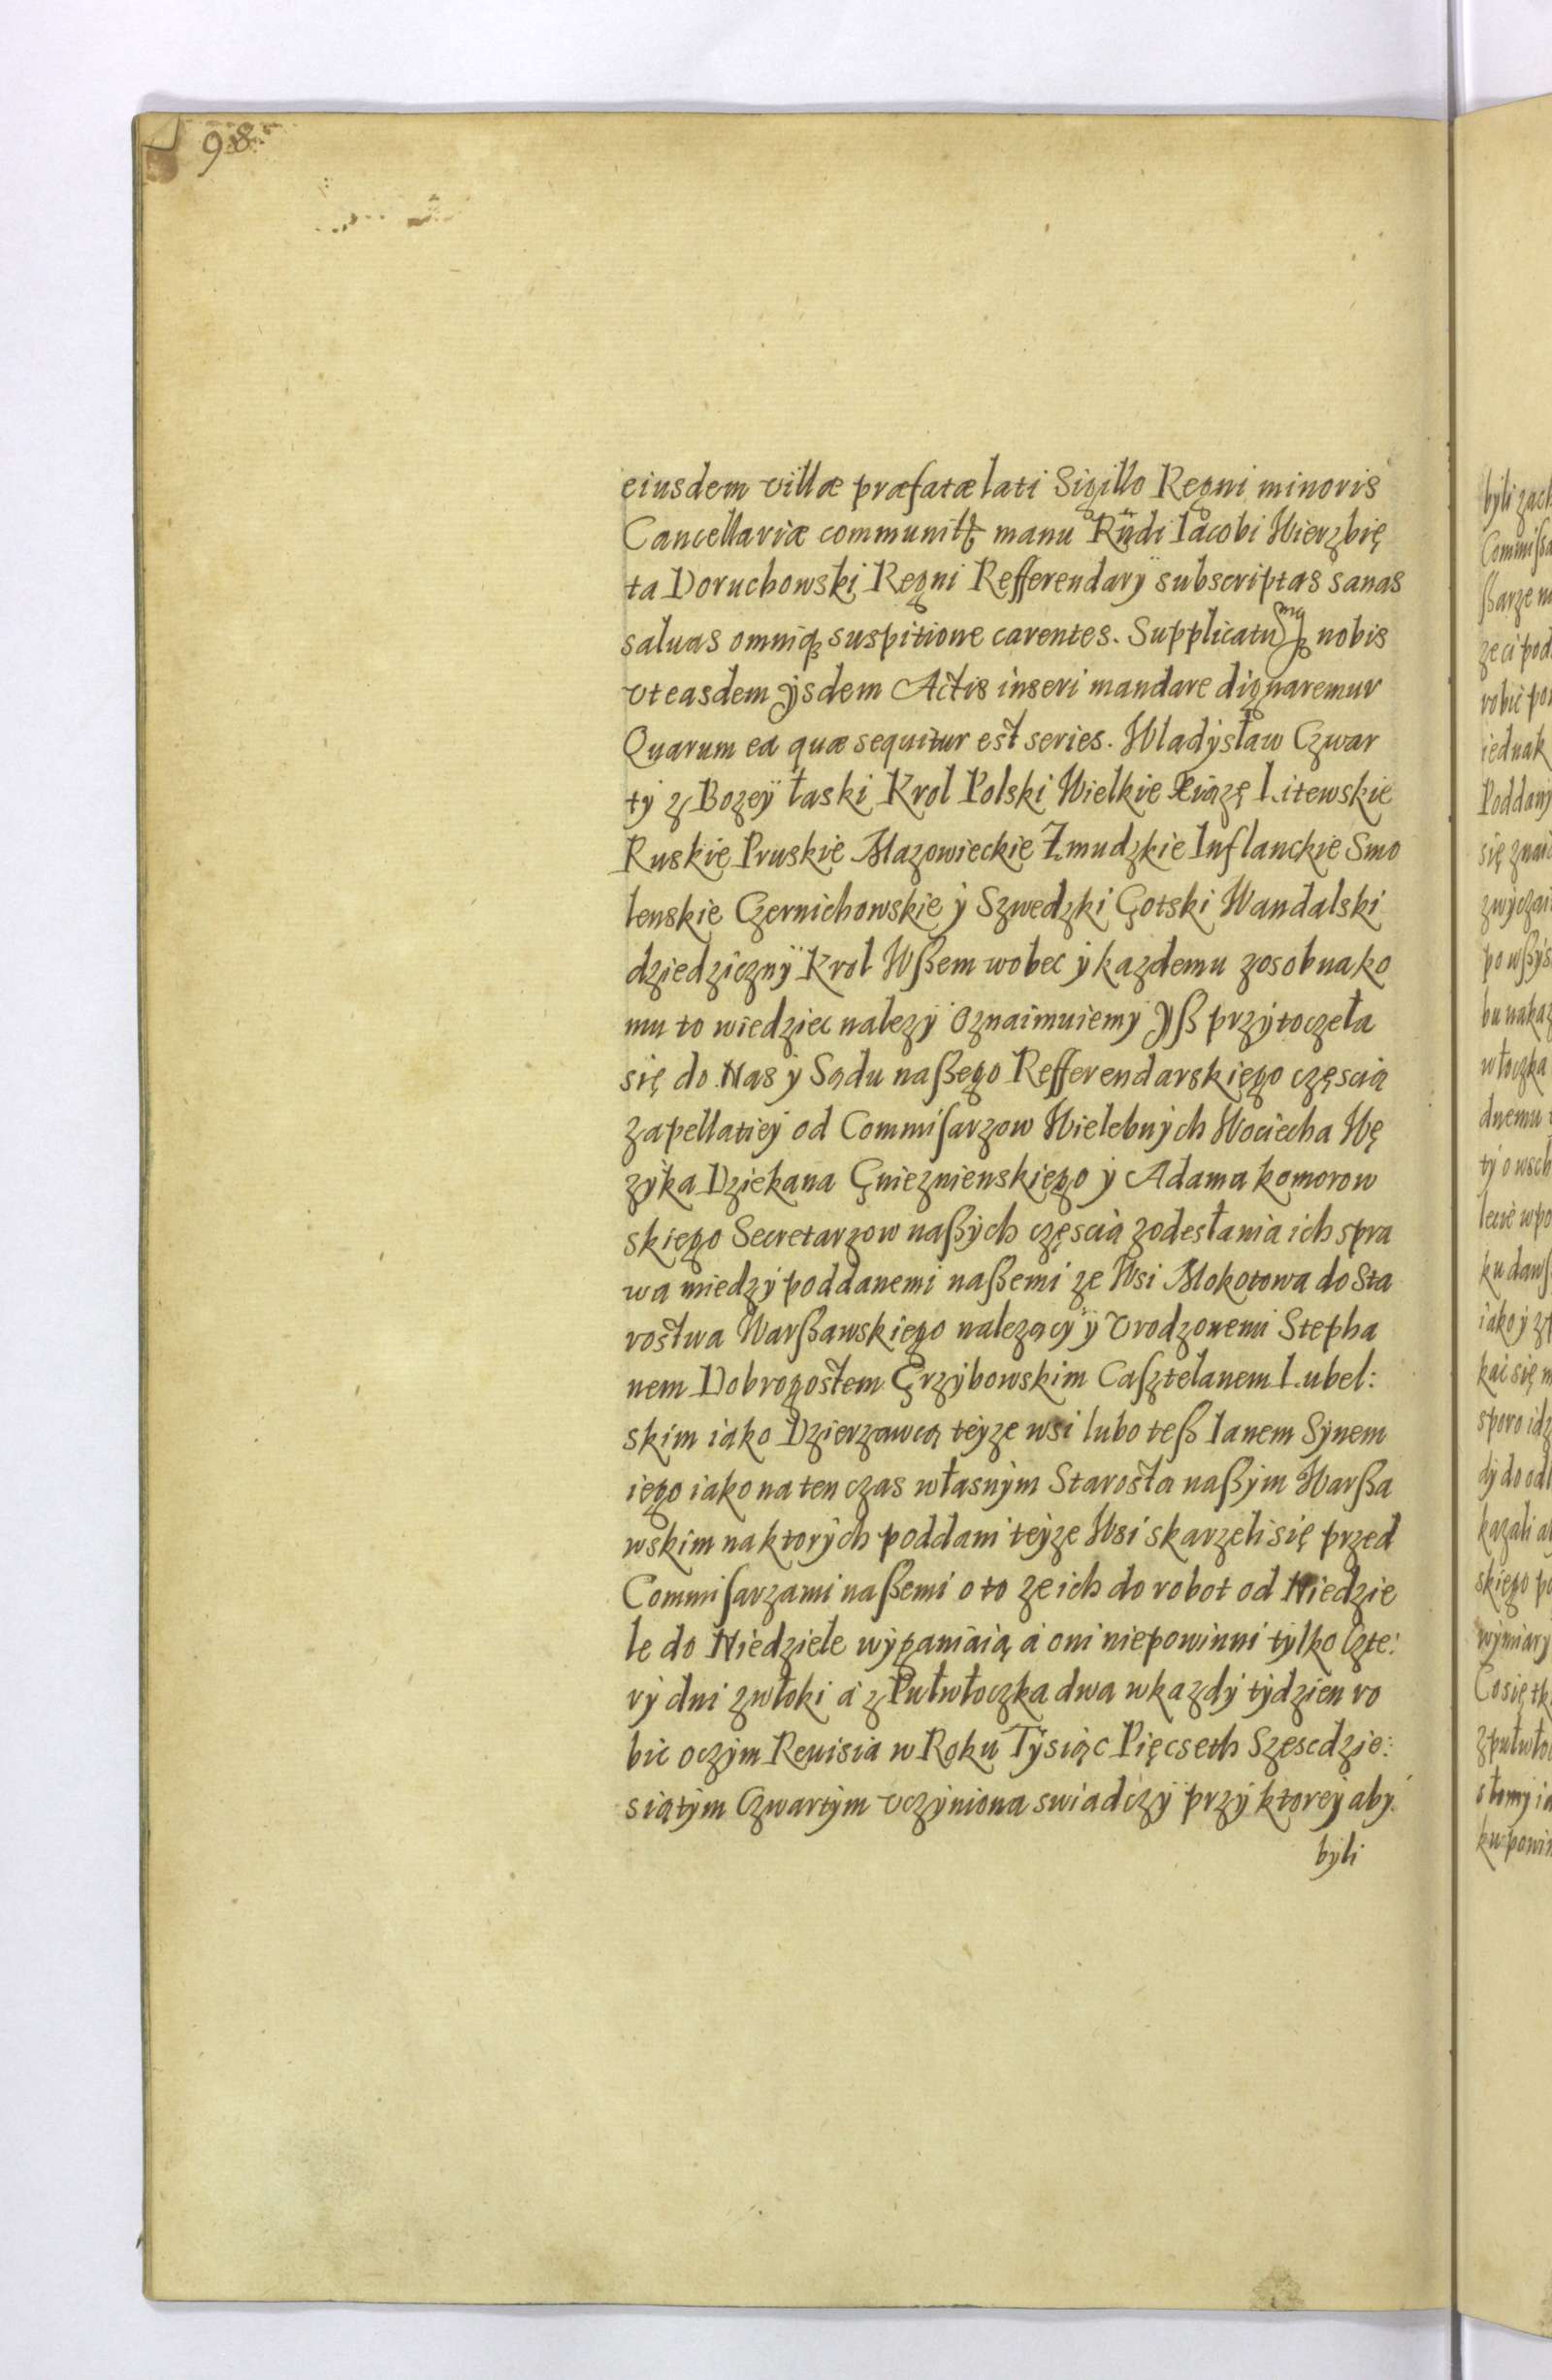 98
eiusdem villæ præfatæ lati Sigillo Regni minoris
Cancellariæ communitt manu Rndi Iacobi Wierzbię
ta Doruchowski Regni Refferendarÿ subscriptas sanas
saluas omniq suspitione carentes. Supplicatumq nobis
vt easdem ÿsdem Actis inseri mandare dignaremur
Quarum ea quæ sequitur est series. Wladÿsław Czwar
tÿ z Bozeÿ łaski Krol Polski Wielkie Xiązę Litewskie
Ruskie Pruskie Mazowieckie Zmudzkie Inflanckie Smo
lenskie Czernichowskie ÿ Szwedzki Gotski Wandalski
dziedzicznÿ Krol Wßem wobec ÿ kazdemu zosobna ko
mu to wiedziec nalezÿ Oznaimuiemÿ Yß przÿtoczeła
się do Nas ÿ Sądu naßego Refferendarskiego częscią
zapellatieÿ od Commisarzow Wielebnÿch Wociecha Wę
zÿka Dziekana Gnieznienskiego ÿ Adama komorow
skiego Secretarzow naßÿch częscią zodesłania ich spra
wa miedzÿ poddanemi naßemi ze Wsi Mokotowa do Sta
rostwa Warßawskiego nalezącÿ ÿ Vrodzonemi Stepha
nem Dobrogostem Grzÿbowskim Casztelanem Lubel:
skim iako Dzierzawcą teÿze wsi lubo teß Ianem Sÿnem
iego iako na ten czas własnÿm Starosta naßÿm Warßa
wskim na ktorÿch poddani teÿze Wsi skarzeli się przed
Commisarzami naßemi o to ze ich do robot od Niedzie
le do Niedziele wÿganiaią a oni niepowinni tÿlko Czte:
rÿ dni zwłoki a z Pułwłoczka dwa wkazdÿ tÿdzien ro
bic oczÿm Reuisia w Roku Tÿsiąc Pięcseth Szescdzie:
siątÿm Czwartÿm vczÿniona swiadczÿ przÿ ktoreÿ abÿ
bÿli